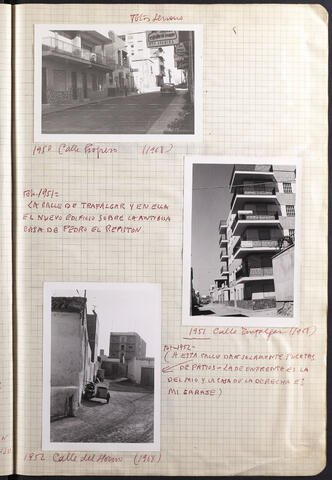 FOTOS Serrano
1950 Calle Progreso (1968)
Foto. 1951=
LA CALLE DE TRAFALGAR Y EN ELLA
EL NUEVO EDIFICIO SOBRE LA ANTIGUA
CASA DE PEDRO EL REPISTON.
1951 Calle Trafalgar (1968)
Fot-1952=
(A ESTA CALLE DAN SOLAMENTE PUERTAS
DE PATIOS - LA DE ENFRENTE ES LA
DEL MIO Y LA CASA DE LA DERECHA ES
MI GARAJE)
1952 Calle del Horno (1968)